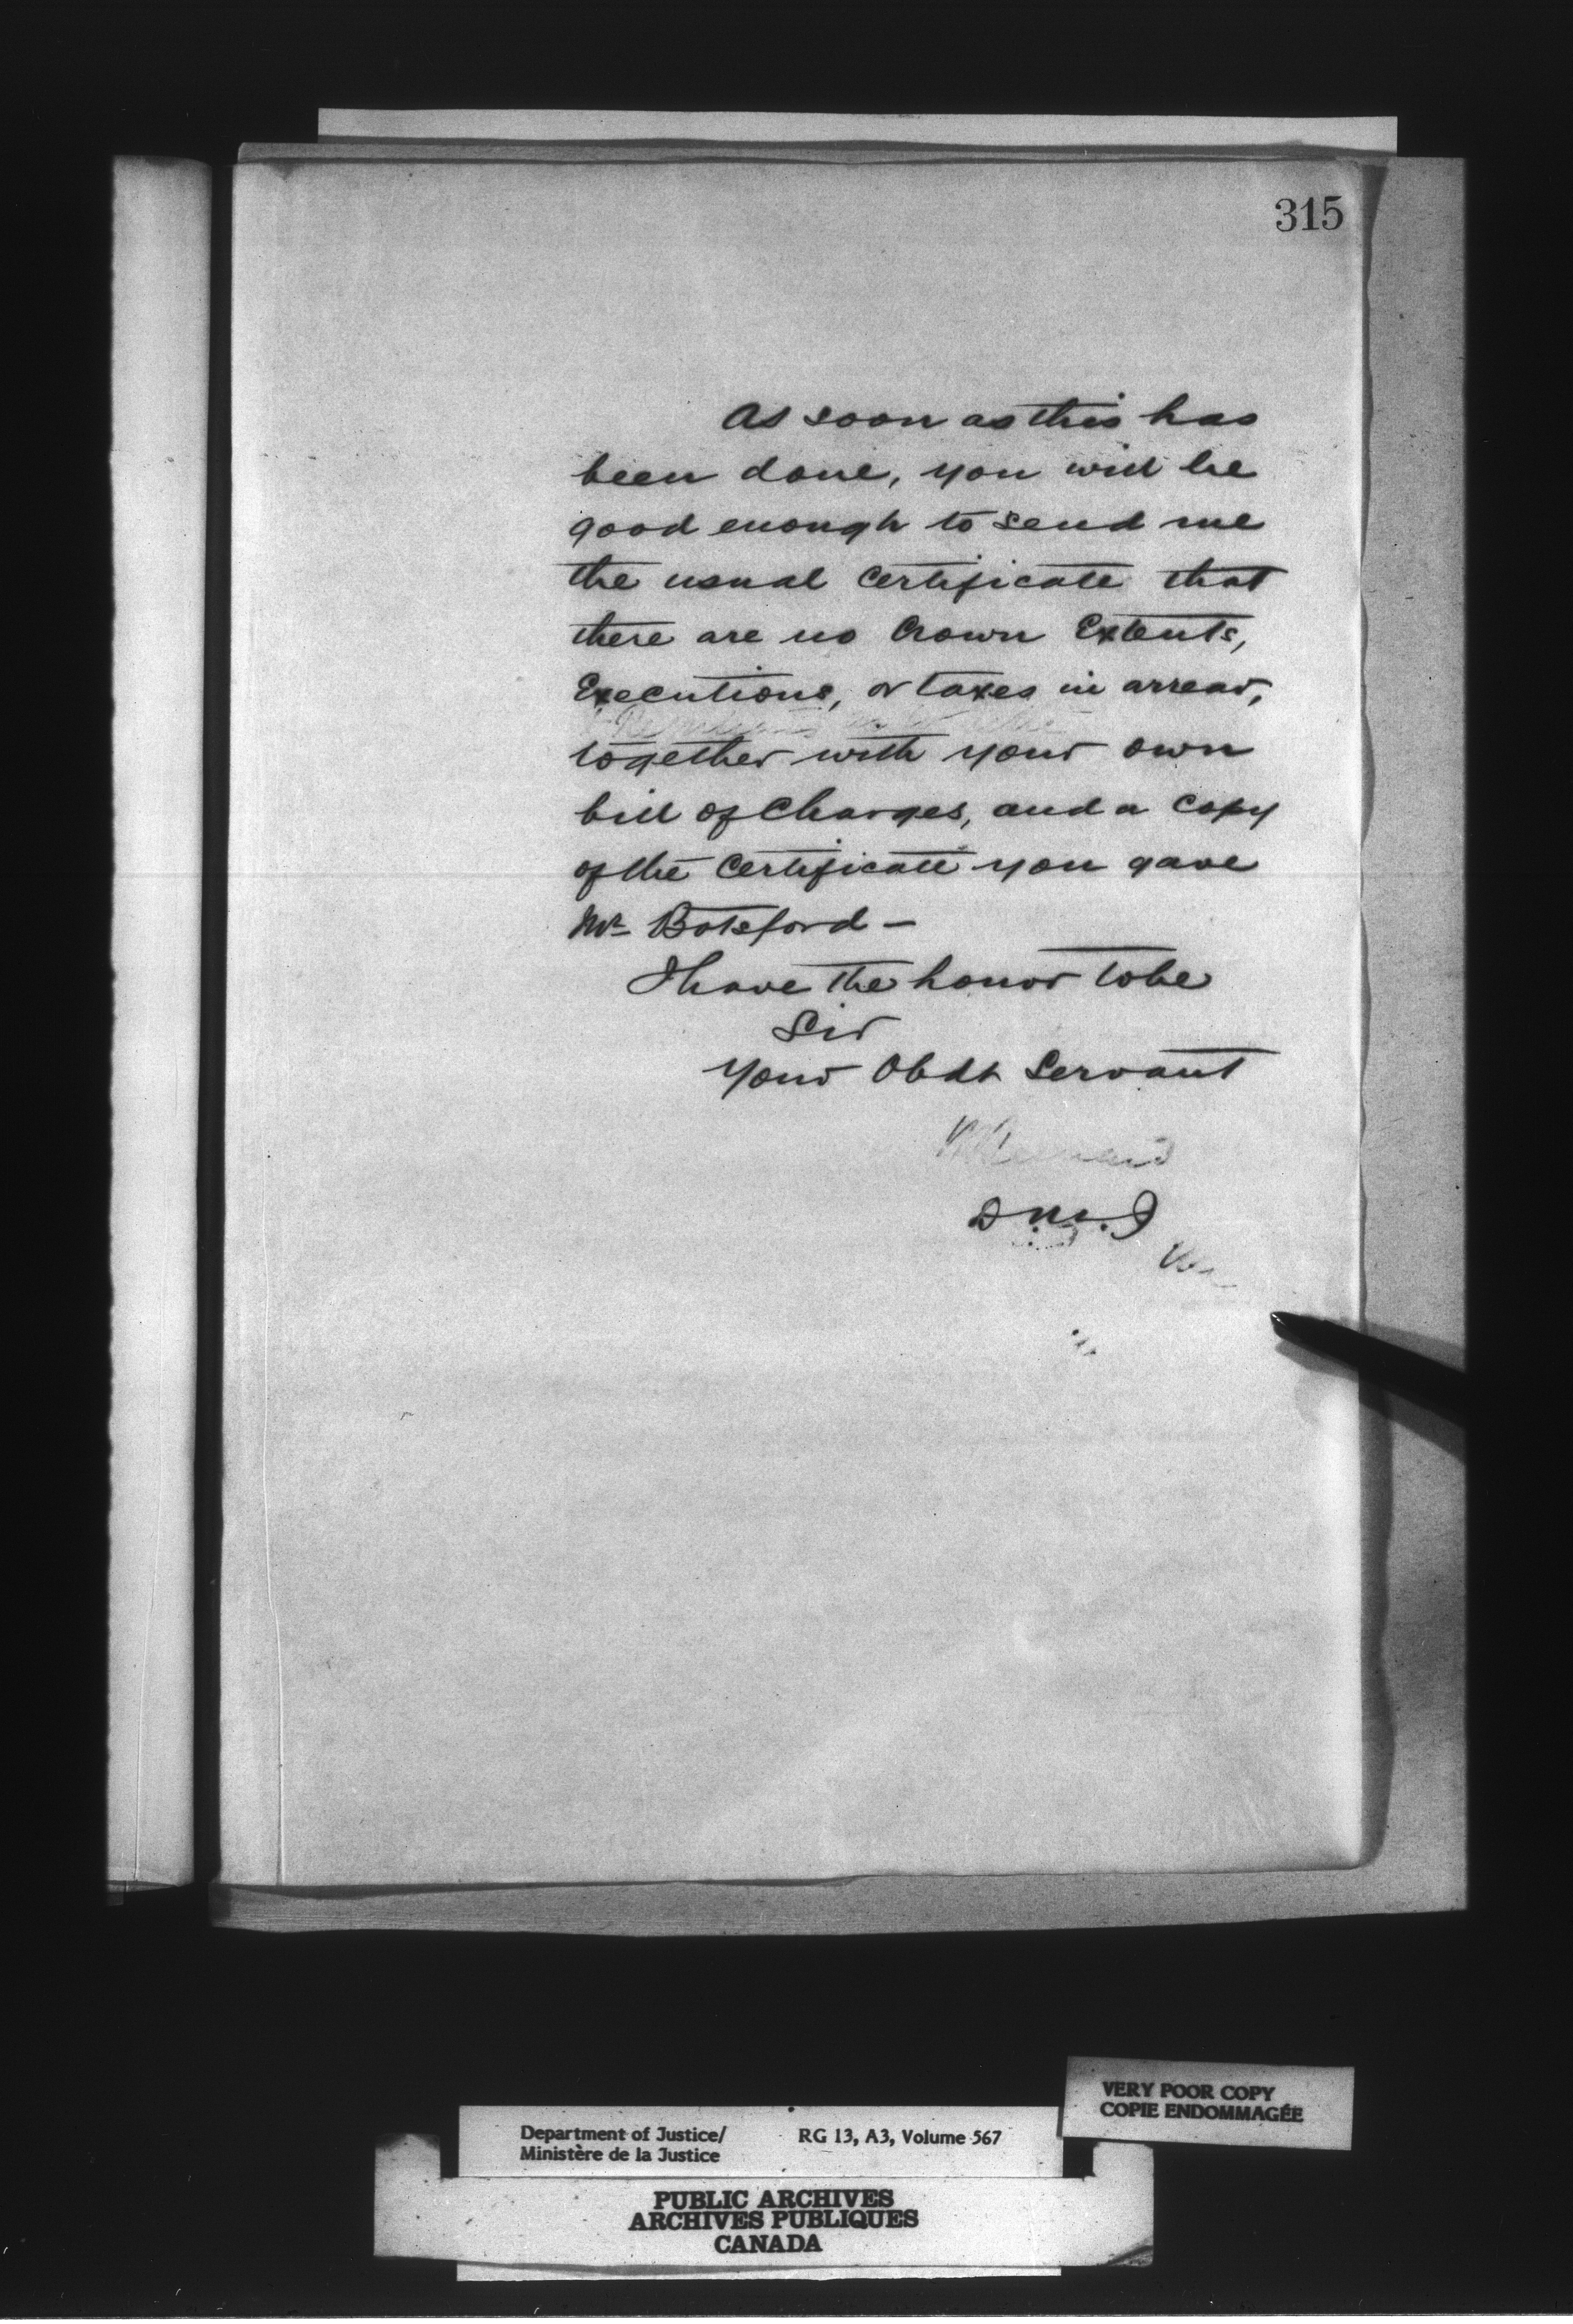 315
As soon as this has
been done, you will be
good enough to send me
the usual Certificate that
there are no Crown Extents,
Executions, or taxes in arrear,
together with your own
bill of Charges, and a Copy
of the Certificate you gave
Mr Botsford —
I have the honor to be
Sir
Your Obdt Servant
D.M.J
VERY POOR COPY
COPIE ENDOMMAGÉE
Department of Justice/ RG 13, A3, Volume 567
Ministère de la Justice
PUBLIC ARCHIVES
ARCHIVES PUBLIQUES
CANADA